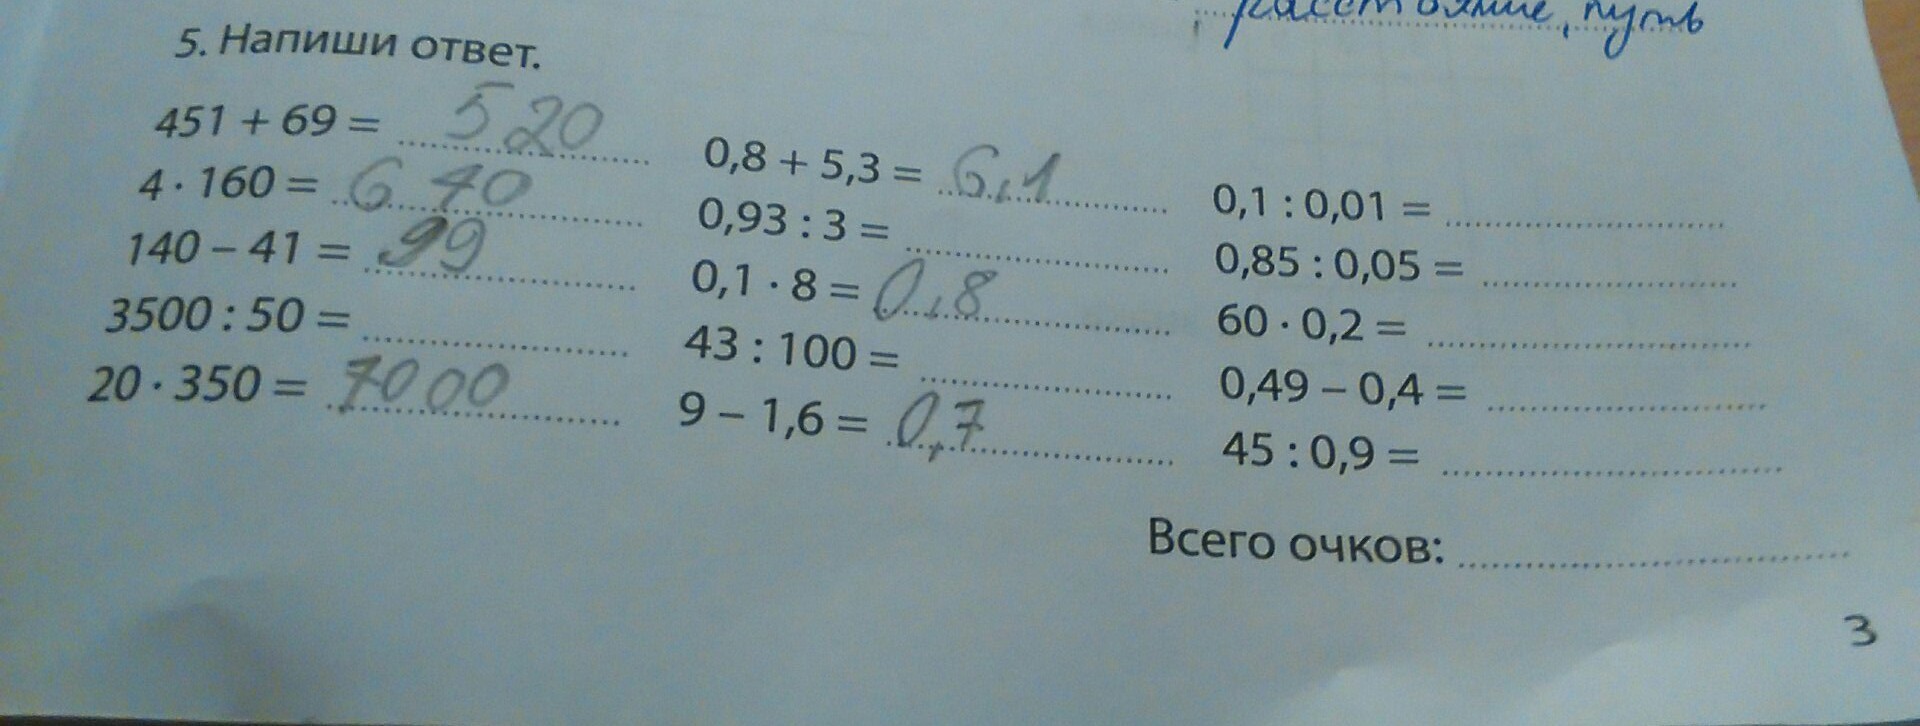 расстояние, путь
5. Напиши ответ.
451 + 69 = 520
4 · 160 = 640
140 – 41 = 99
3500 : 50 =
20 · 350 = 7000
0,8 + 5,3 = 6,1
0,93 : 3 =
0,1 · 8 = 0,8
43 : 100 =
9 – 1,6 = 0,7
0,1 : 0,01 =
0,85 : 0,05 =
60 · 0,2 =
0,49 – 0,4 =
45 : 0,9 =
Всего очков:
3